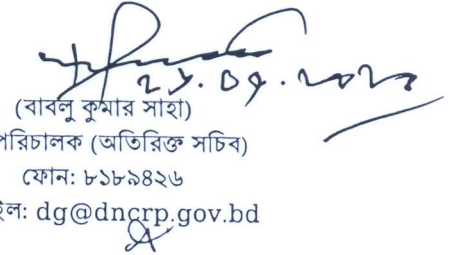 (বাবলু কুমার সাহা)
পরিচালক (অতিরিক্ত সচিব)
ফোন: ৮১৮৯৪২৬
ইল: dg@dncrp.gov.bd